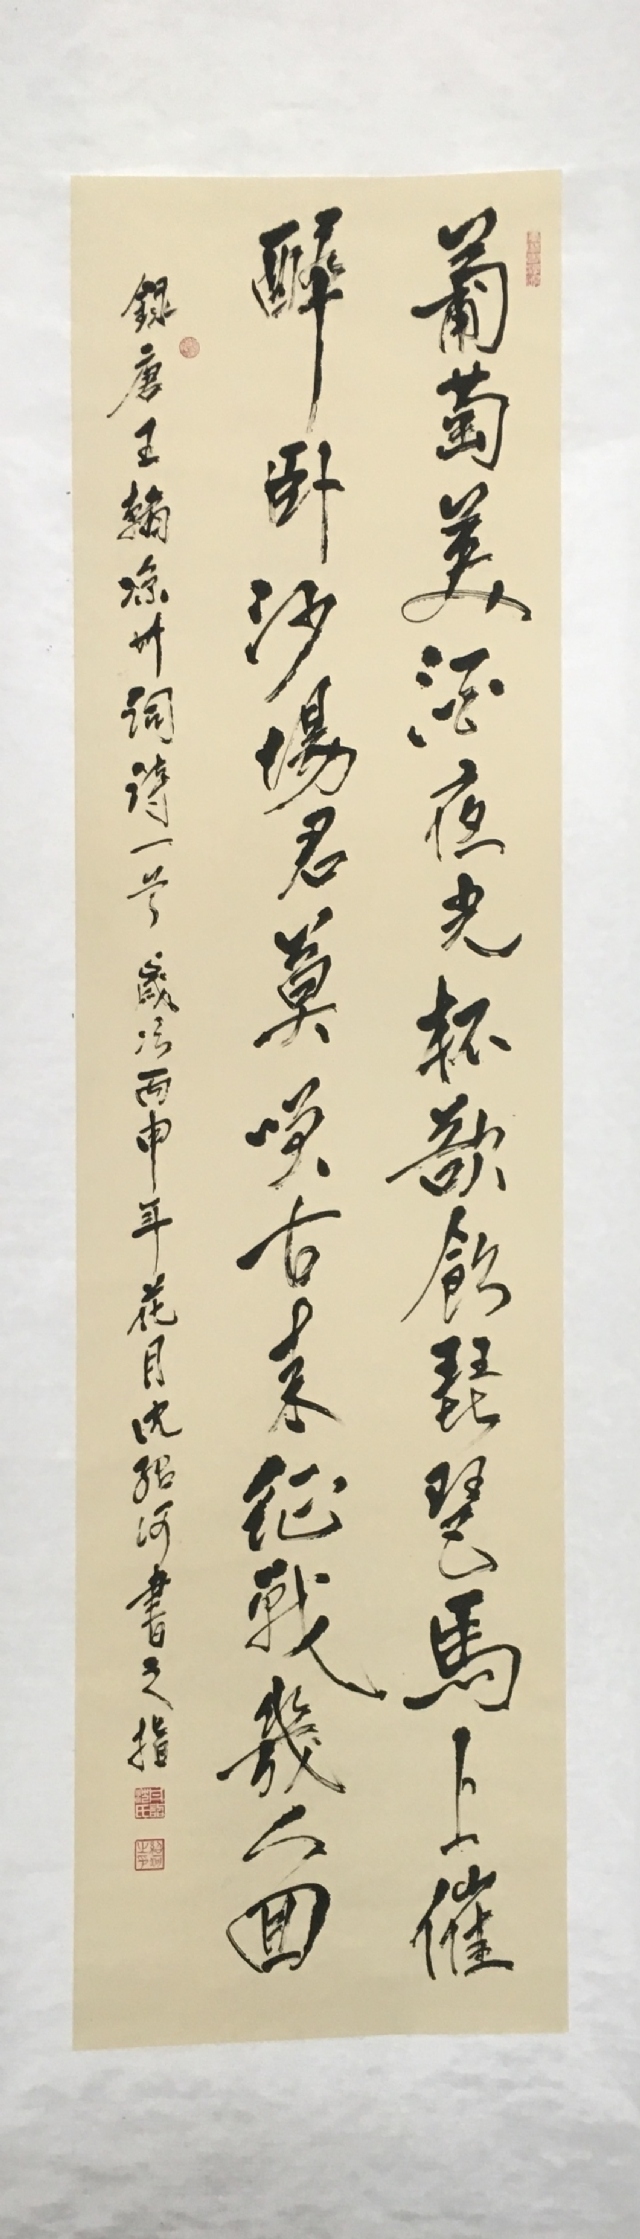 葡萄美酒夜光杯欲飲琵琶馬上催
醉卧沙場君莫笑古来征戰幾人回
録唐王翰凉州詞詩一首歲次丙申年花月沈紹河書之指